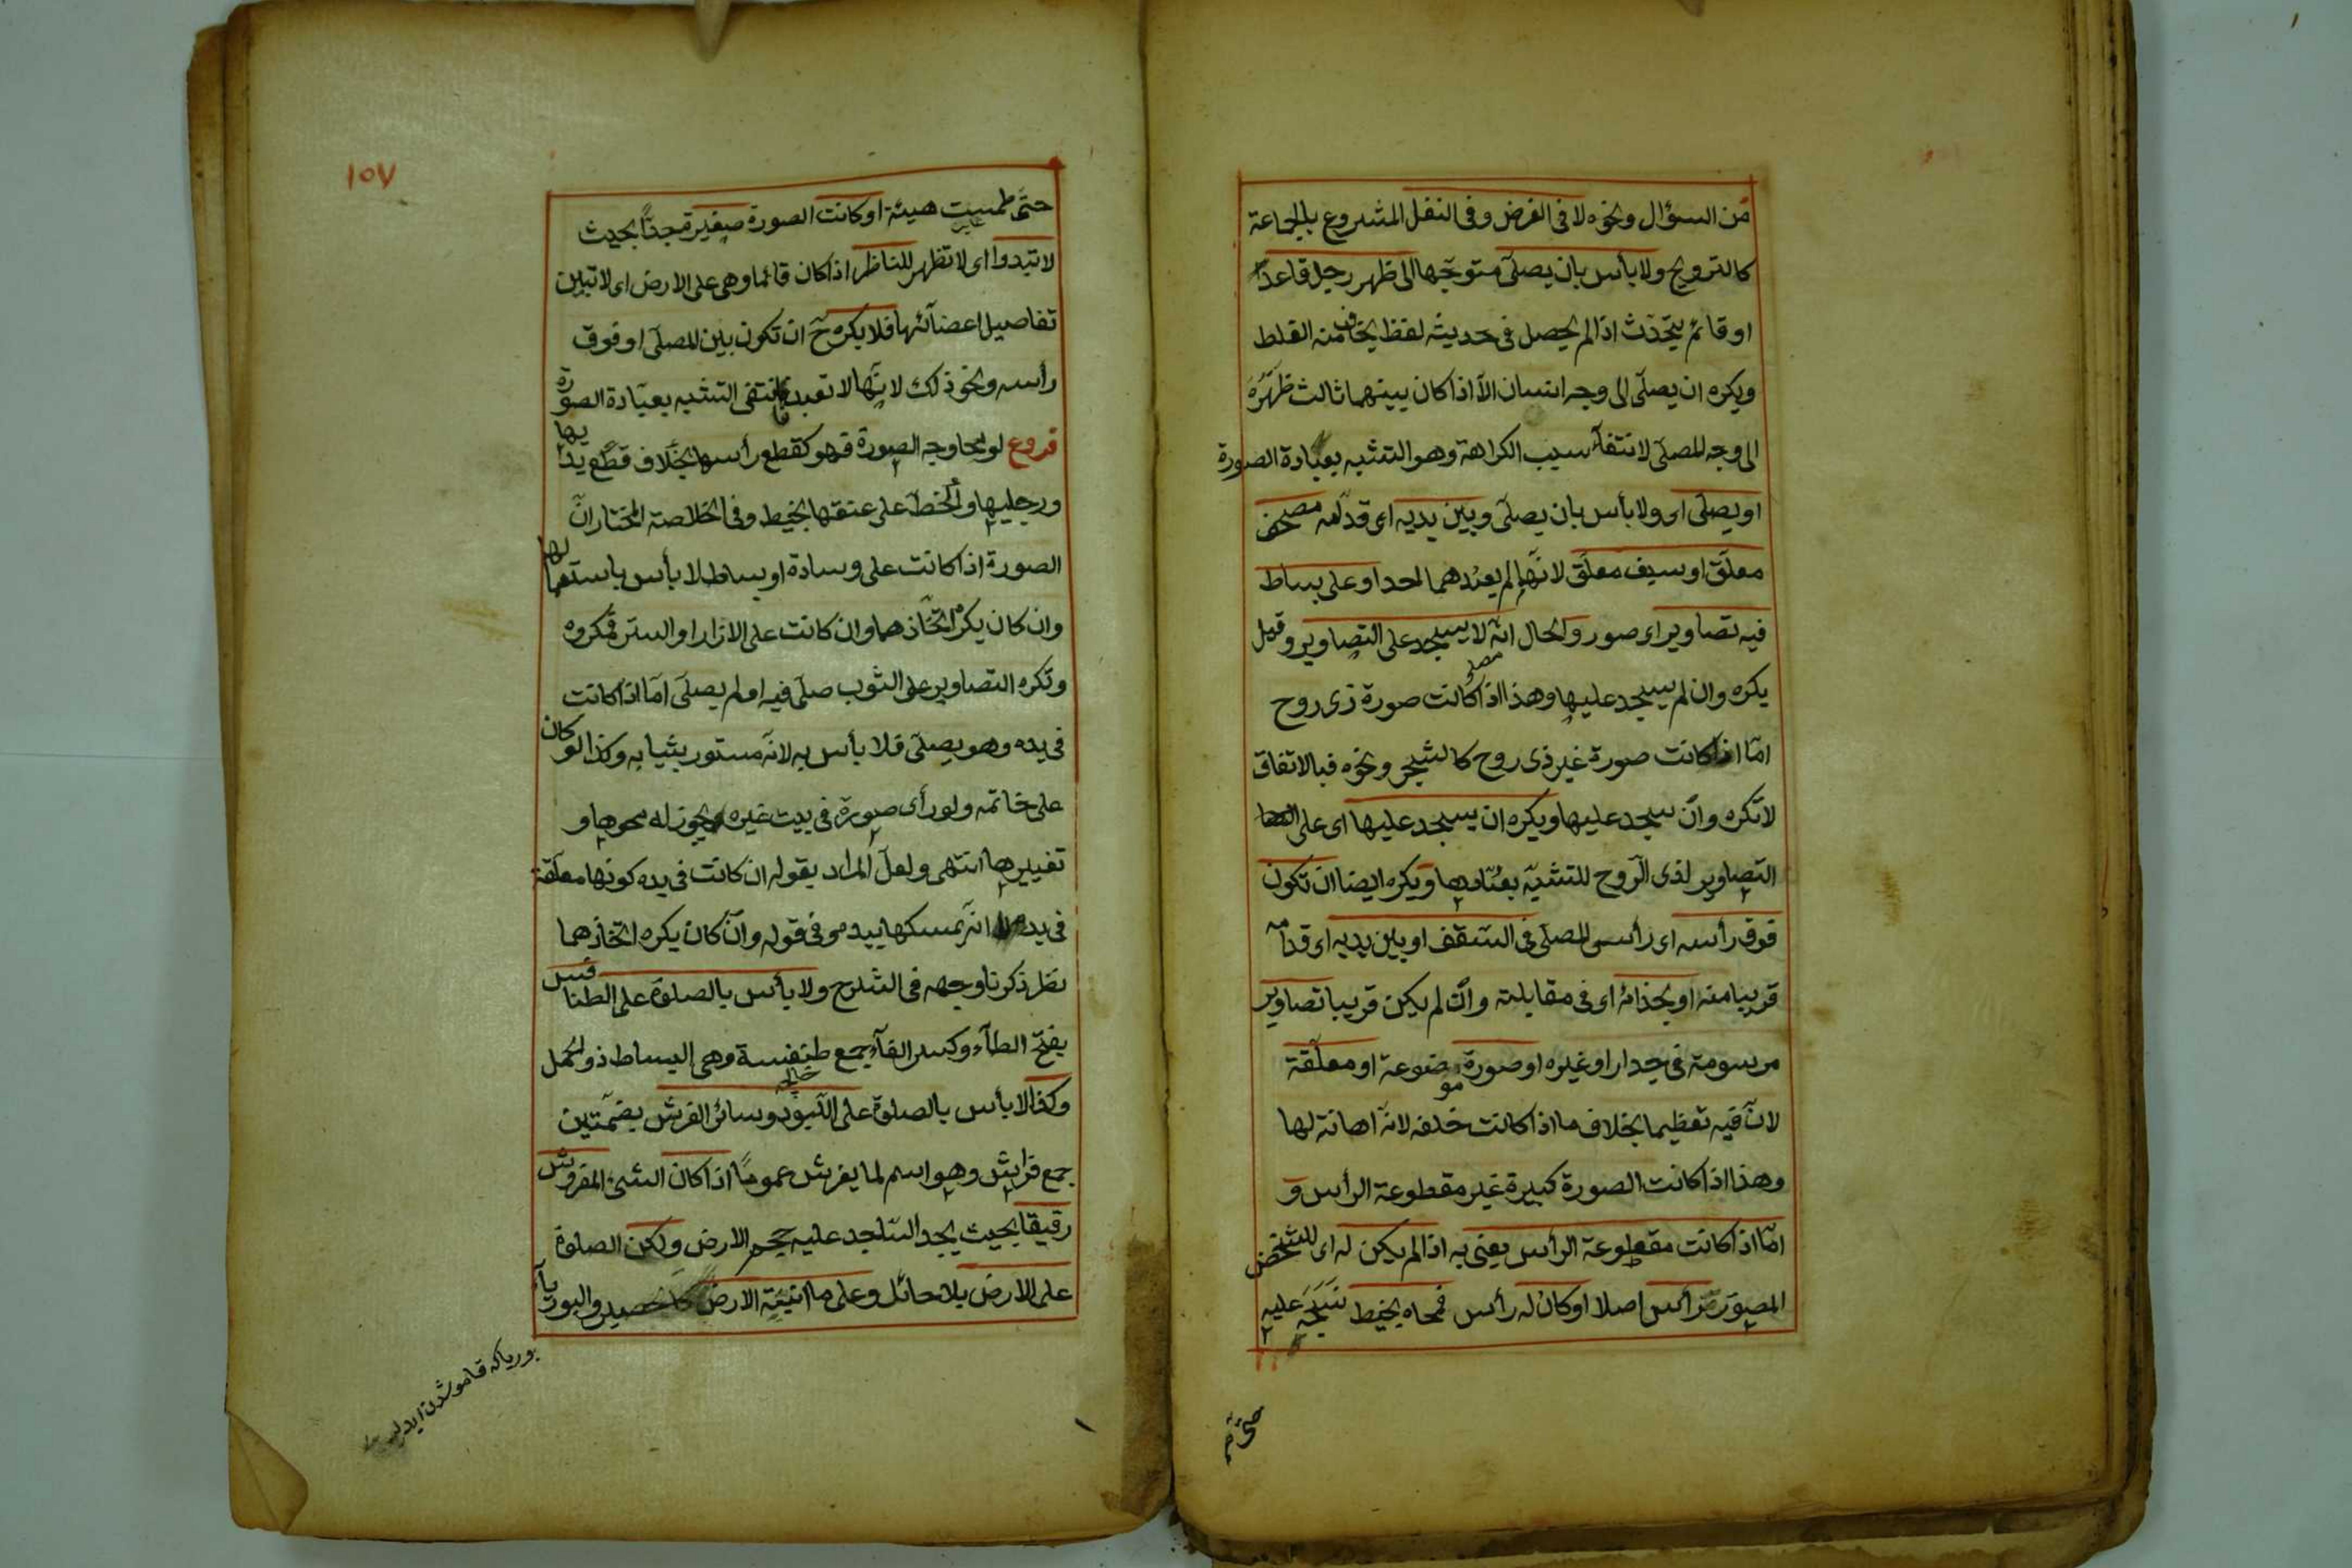 من السؤال ونحوه لا فى الفرض وفى النفل المشروع بالجماعة
كالترويح ولا بأس بان يصلّى متوجّها الى ظهر رجل قاعد
او قائم يتحدث اذا لم يحصل فى حديثه لفظ يخاف منه الغلط
ويكره ان يصلّى الى وجه انسان الّا اذا كان بينهما ثالث ظهره
الى وجه المصلّى لانتفآء سبب الكراهة وهو التشبه بعبادة الصورة
او يصلّى اى ولا بأس بان يصلّى وبين يديه اى قدامه مصحف
معلّق او سيف معلّق لانهما لم يعبدهما احد او على بساط
فيه تصاوير اى صور والحال انه لا يسجد على التصاوير وقيل
يكره وان لم يسجد عليها وهذا اذا كانت صورة ذى روح
امّا اذا كانت صورة غير ذى روح كالشجر ونحوه فبالاتفاق
لا تكره وان سجد عليها ويكره ان يسجد عليها اى على
التصاوير لذى الرّوح للتشبّه بعبّادها ويكره ايضا ان تكون
فوق رأسه اى رأس المصلّى فى السّقف او بين يديه اى قدامه
قريبا منه او بحذائه اى فى مقابلته وان لم يكن قريبا تصاوير
مرسومة فى جدار او غيره او صورة موضوعة او معلّقة
لانّ فيه تعظيما بخلاف ما اذا كانت خلفه لانّه اهانة لها
وهذا اذا كانت الصورة كبيرة غير مقطوعة الرأس و
امّا اذا كانت مقطوعة الرأس يعنى به اذا لم يكن له اى للشخص
المصوّر رأس اصلا او كان له رأس فمحاه بخيط نسجه عليه
حتى
١٥٧
حتى طمست هيئة او كانت الصورة صغيرة جدّا بحيث
لا تبدوا اى لا تظهر للناظر اذا كان قائما وهى على الارض اى لا تبين
تفاصيل اعضائها فلا يكره ح ان تكون بين المصلّى او فوق
رأسه ونحو ذلك لانّها لا تعبد فانتفى التشبه بعبادة الصورة
فروع لو محا وجه الصورة فهو كقطع رأسها بخلاف قطع يديها
ورجليها والخط على عنقها بخيط وفى الخلاصة المختار انّ
الصورة اذا كانت على وسادة او بساط لا بأس باستعمالها
وان كان يكره اتخاذهما وان كانت على الازار او الستر فمكروه
وتكره التصاوير على الثوب صلّى فيه او لم يصلّى امّا اذا كانت
فى يده وهو يصلّى فلا بأس به لانه مستور بثيابه وكذا لو كان
على خاتمه ولو رأى صورة فى بيت غيره يجوز له محوها و
تغييرها انتهى ولعلّ المراد بقوله ان كانت فى يده كونها معلّقة
فى يده لا انه يمسكها بيده وفى قوله وان كان يكره اتخاذهما
نظر ذكرنا وجهه فى الشرح ولا بأس بالصلوة على الطنافس
بفتح الطآء وكسر الفآء جمع طنفسة وهى البساط ذو الخمل
وكذا لا بأس بالصلوة على اللبود وسائر الفرش بضمّتين
جمع فراش وهو اسم لما يفرش عموما اذا كان الشئ المفروش
رقيقا بحيث يجد الساجد عليه حجم الارض ولكن الصلوة
على الارض بلا حائل وعلى ما انبتته الارض كالحصير والبوريآء